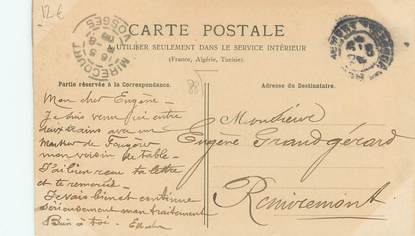 12 €
CARTE POSTALE
À UTILISER SEULEMENT DANS LE SERVICE INTÉRIEUR
(France, Algérie, Tunisie).
MIRECOURT
VOSGES
Partie réservée à la Correspondance.
Adresse du Destinataire.
Mon cher Eugène -
Je suis venu ici entre
deux trains avec un
Monsieur de
mon voisin de table -
J'ai bien reçu ta lettre
et te remercie -
Je vais bien et continue
sérieusement mon traitement
Bien à toi.
Monsieur
Eugène Grandgérard
Remiremont